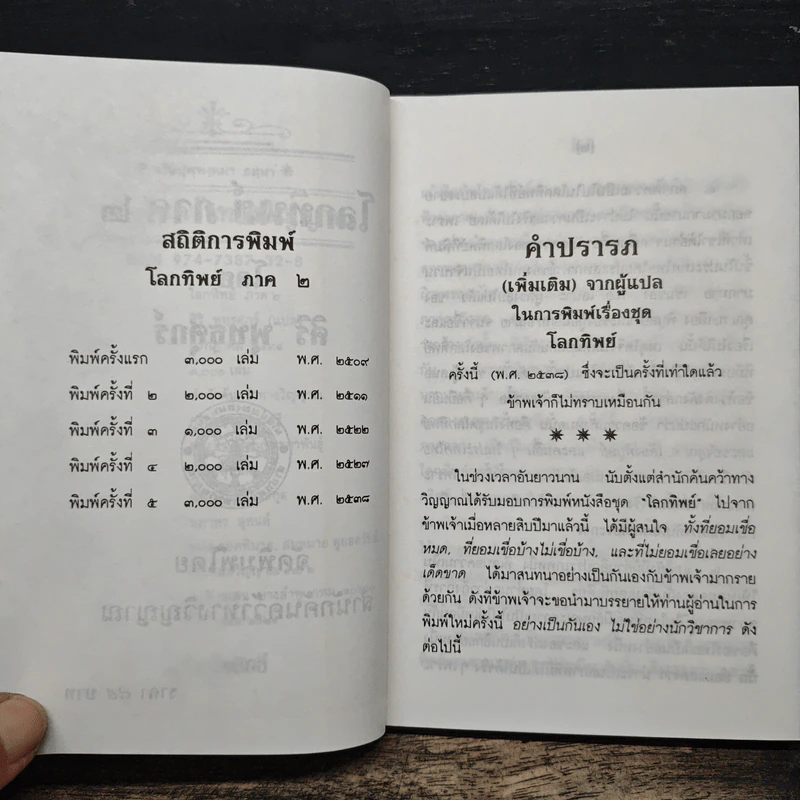 สถิติการพิมพ์
โลกทิพย์ ภาค ๒
พิมพ์ครั้งแรก ๓,๐๐๐ เล่ม พ.ศ. ๒๕๐๙
พิมพ์ครั้งที่ ๒ ๒,๐๐๐ เล่ม พ.ศ. ๒๕๑๑
พิมพ์ครั้งที่ ๓ ๑,๐๐๐ เล่ม พ.ศ. ๒๕๒๒
พิมพ์ครั้งที่ ๔ ๒,๐๐๐ เล่ม พ.ศ. ๒๕๒๗
พิมพ์ครั้งที่ ๕ ๓,๐๐๐ เล่ม พ.ศ. ๒๕๓๘
คำปรารภ
(เพิ่มเติม) จากผู้แปล
ในการพิมพ์เรื่องชุด
โลกทิพย์
ครั้งนี้ (พ.ศ. ๒๕๓๘) ซึ่งจะเป็นครั้งที่เท่าใดแล้ว
ข้าพเจ้าก็ไม่ทราบเหมือนกัน
ในช่วงเวลาอันยาวนาน นับตั้งแต่สำนักค้นคว้าทาง
วิญญาณได้รับมอบการพิมพ์หนังสือชุด "โลกทิพย์" ไปจาก
ข้าพเจ้าเมื่อหลายสิบปีมาแล้วนี้ ได้มีผู้สนใจ ทั้งที่ยอมเชื่อ
หมด, ที่ยอมเชื่อบ้างไม่เชื่อบ้าง, และที่ไม่ยอมเชื่อเลยอย่าง
เด็ดขาด ได้มาสนทนาอย่างเป็นกันเองกับข้าพเจ้ามากราย
ด้วยกัน ดังที่ข้าพเจ้าจะขอนำมาบรรยายให้ท่านผู้อ่านในการ
พิมพ์ใหม่ครั้งนี้ อย่างเป็นกันเอง ไม่ใช่อย่างนักวิชาการ ดัง
ต่อไปนี้